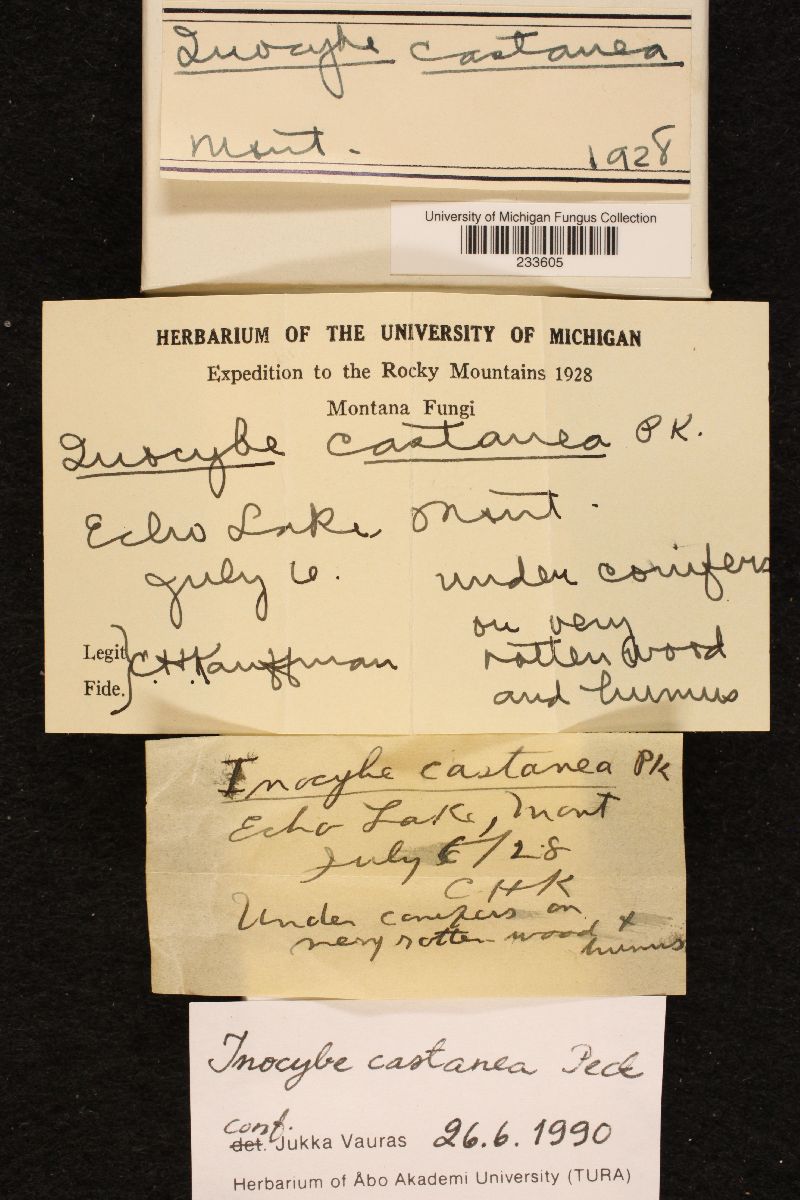 Inocybe castanea
Mont. 1928
University of Michigan Fungus Collection
233605
HERBARIUM OF THE UNIVERSITY OF MICHIGAN
Expedition to the Rocky Mountains 1928
Montana Fungi
Inocybe castanea PK.
Echo Lake, Mont.
July 6. under conifers
on very
Legit rotten wood
C.H.Kauffman
Fide. and humus
Inocybe castanea PK
Echo Lake, Mont
July 6/28
C H K
Under conifers on
very rotten wood, +
humus
Inocybe castanea Peck
conf.
det. Jukka Vauras 26.6.1990
Herbarium of Åbo Akademi University (TURA)